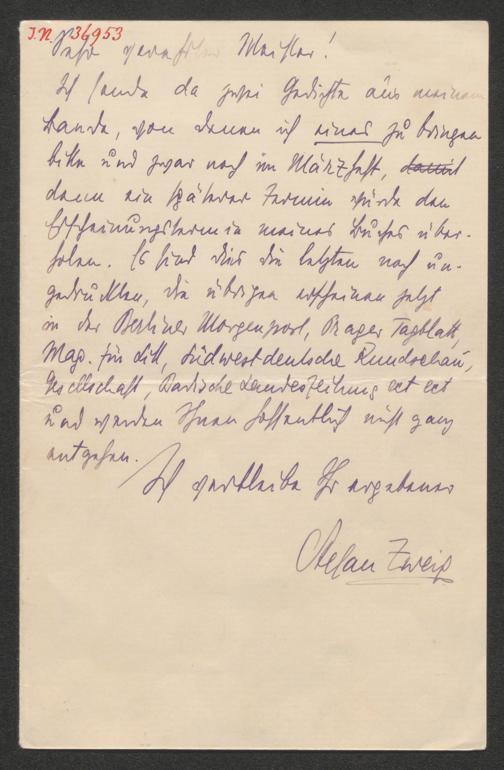 I.N. 36953
Sehr verehrter Meister!
Ich sende da zwei Gedichte aus meinem
Bande, von denen ich eines zu bringen
bitte und zwar noch im Märzheft, damit
denn ein späterer Termin würde den
Erscheinungstermin meines Buches über-
holen. Es sind dies die letzten noch un-
gedruckten, die übrigen erscheinen jetzt
in der Berliner Morgenpost, Prager Tagblatt,
Mag. für Litt, Südwestdeutsche Rundschau,
Gesellschaft, Badische Landeszeitung ect ect
und werden Ihnen hoffentlich nicht ganz
entgehen.
Ich verbleibe Ihr ergebener
Stefan Zweig